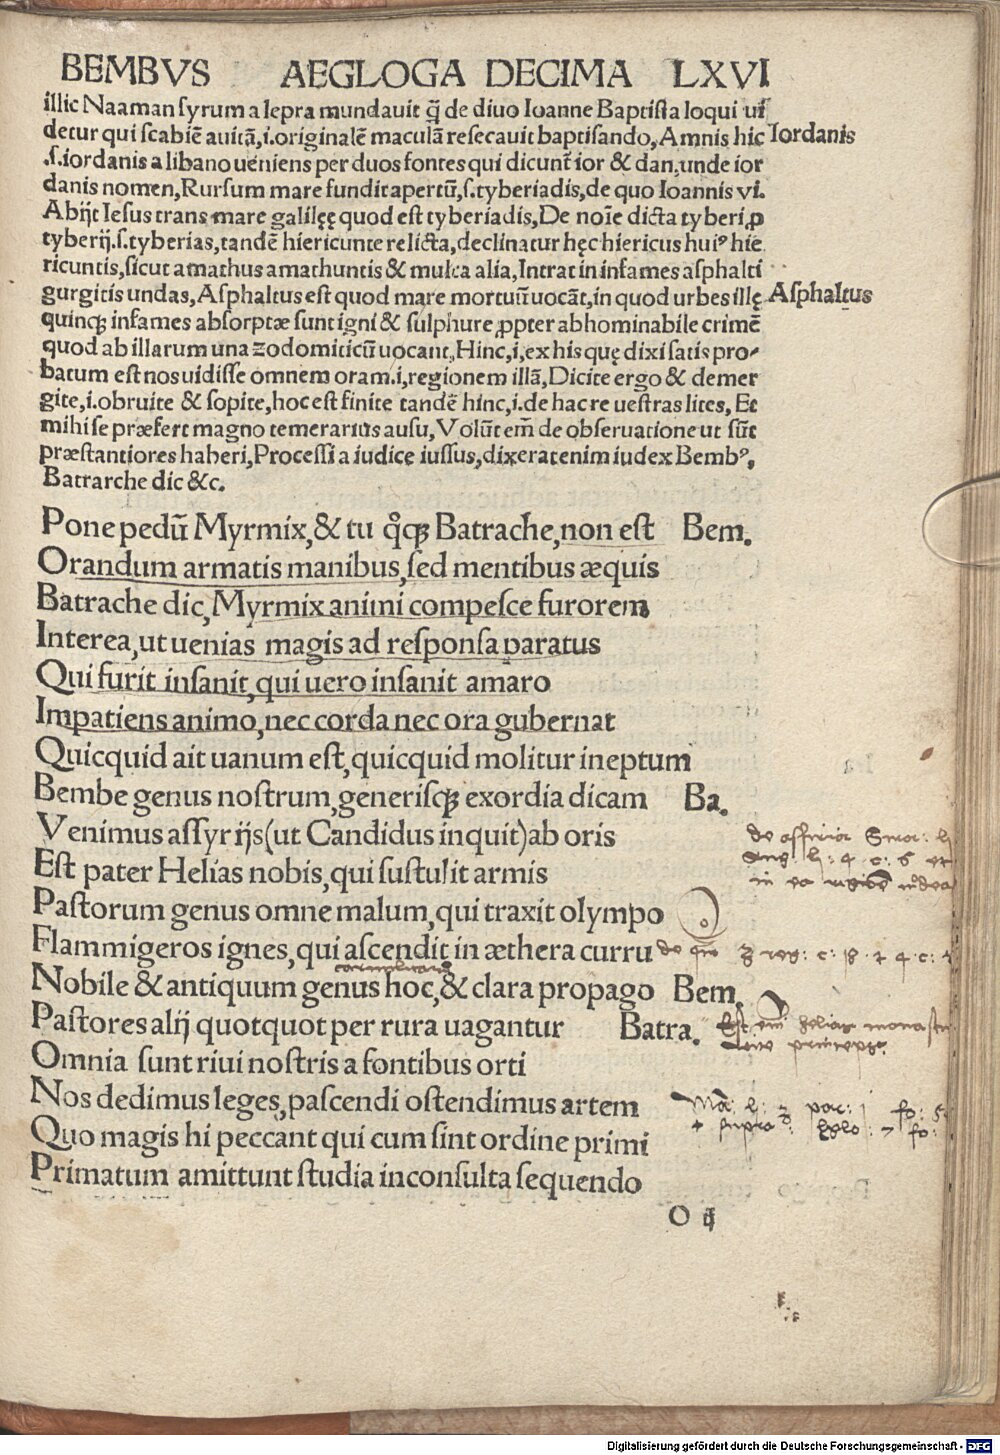 BEMBVS AEGLOGA DECIMA LXVI
illic Naaman ſyrum a lepra mundauit q̃ de diuo Ioanne Baptiſta loqui ui
detur qui ſcabiẽ auitã,i.originalẽ maculã reſecauit baptiſando, Amnis hic Iordanis
.ſ.iordanis a libano ueniens per duos fontes qui dicunt̃ ior & dan, unde ior
danis nomen, Rurſum mare fundit apertũ,ſ.tyberiadis, de quo Ioannis vi.
Abijt Ieſus trans mare galilęę quod eſt tyberiadis, De noĩe dicta tyberi, ꝓ
tyberij.ſ.tyberias, tandẽ hiericunte relicta, declinatur hęc hiericus huiꝰ hie
ricuntis, ſicut amathus amathuntis & multa alia, Intrat in infames aſphalti
gurgitis undas, Aſphaltus eſt quod mare mortuũ uocãt, in quod urbes illę Aſphaltus
quinqꝫ infames abſorptæ ſunt igni & ſulphure ꝓpter abhominabile crimẽ
quod ab illarum una zodomiticũ uocant, Hinc,i,ex his quę dixi ſatis pro-
batum eſt nos uidiſſe omnem oram.i,regionem illã, Dicite ergo & demer
gite,i.obruite & ſopite, hoc eſt finite tandẽ hinc,i.de hac re ueſtras lites, Et
mihi ſe præfert magno temerarius auſu, Volũt em̃ de obſeruatione ut ſũt
præſtantiores haberi, Proceſſi a iudice iuſſus, dixerat enim iudex Bembꝰ,
Batrarche dic &c.
Pone pedũ Myrmix,& tu q̊qꝫ Batrache, non eſt Bem.
Orandum armatis manibus, ſed mentibus æquis
Batrache dic, Myrmix animi compeſce furorem
Interea, ut uenias magis ad reſponſa paratus
Qui furit inſanit, qui uero inſanit amaro
Impatiens animo, nec corda nec ora gubernat
Quicquid ait uanum eſt, quicquid molitur ineptum
Bembe genus noſtrum, generiſqꝫ exordia dicam Ba.
Venimus aſſyrijs (ut Candidus inquit) ab oris
Eſt pater Helias nobis, qui ſuſtulit armis
Paſtorum genus omne malum, qui traxit olympo
Flammigeros ignes, qui aſcendit in æthera curru
Nobile & antiquum genus hoc,& clara propago Bem.
Paſtores alij quotquot per rura uagantur Batra.
Omnia ſunt riui noſtris a fontibus orti
Nos dedimus leges, paſcendi oſtendimus artem
Quo magis hi peccant qui cum ſint ordine primi
Primatum amittunt ſtudia inconſulta ſequendo
O ij
Digitalisierung gefördert durch die Deutsche Forschungsgemeinschaft - DFG